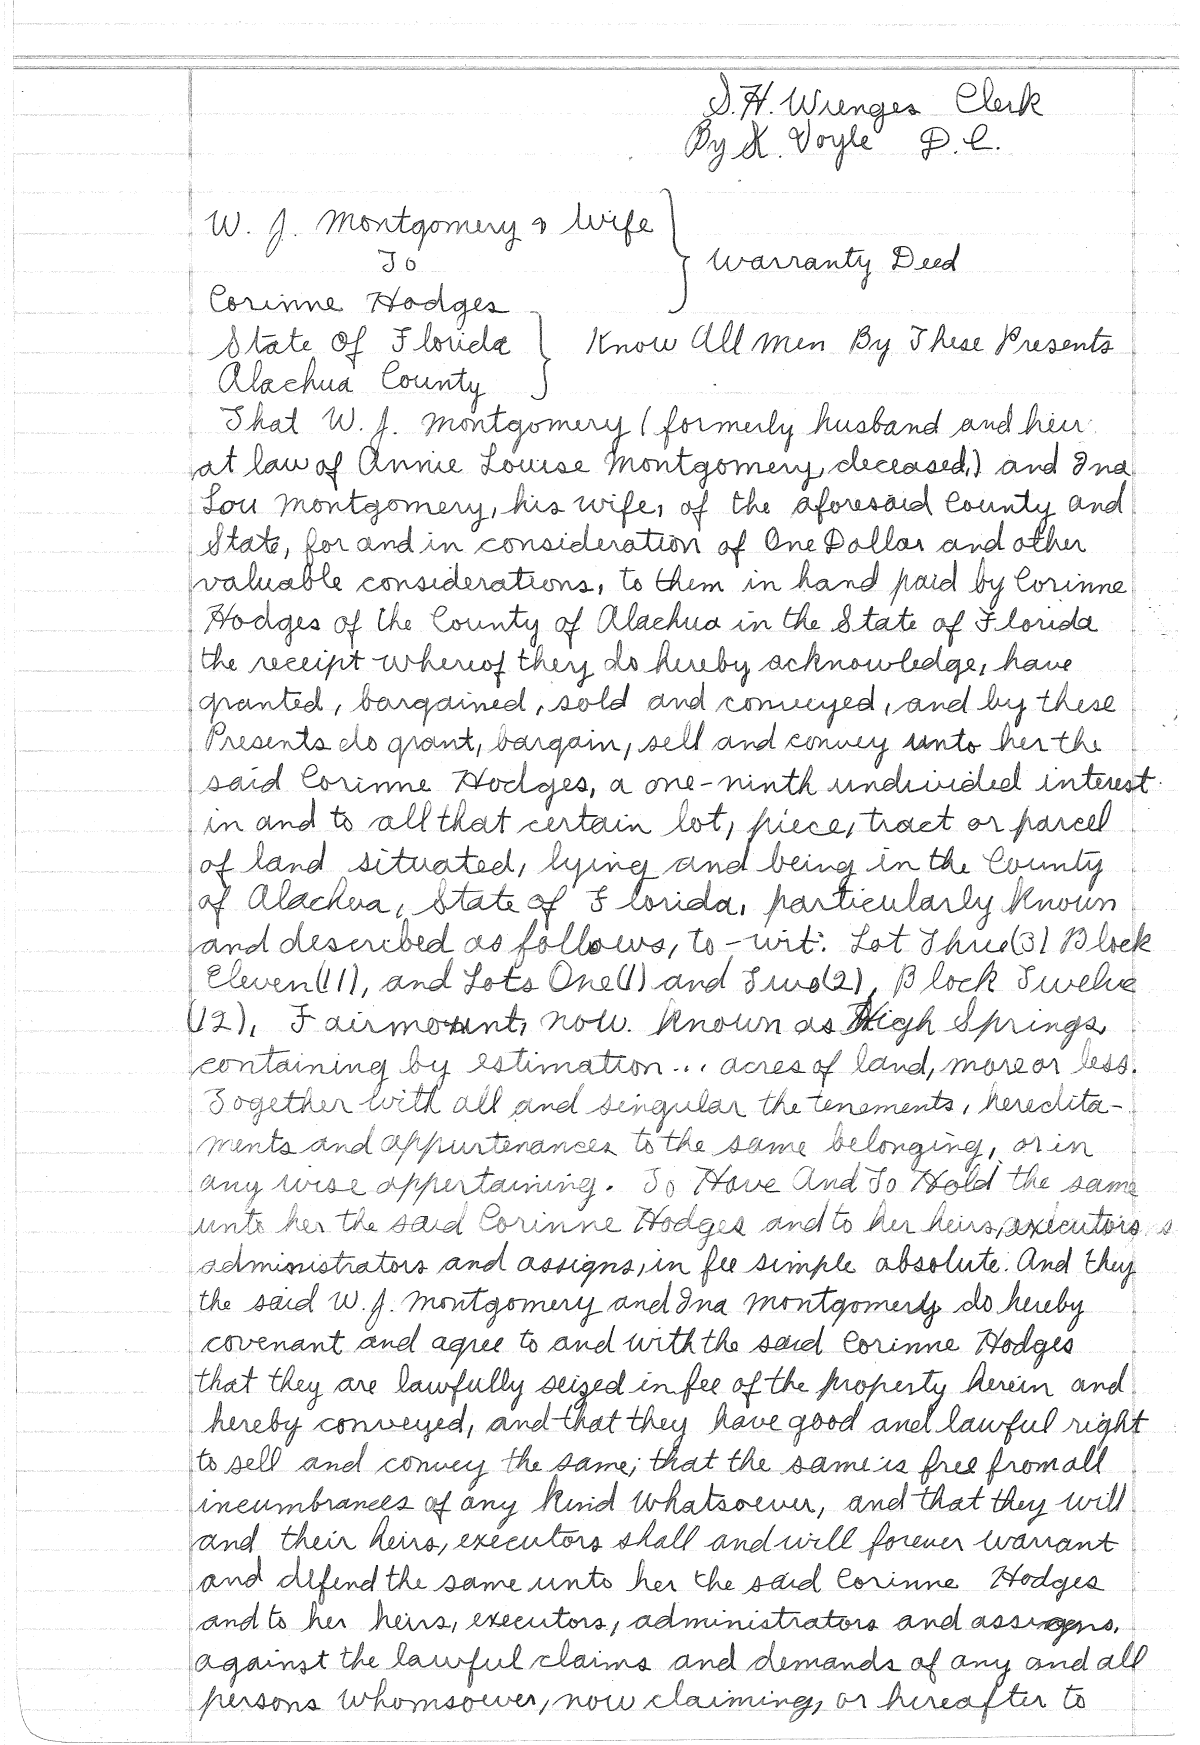 S. H. Wienges Clerk
By K. Voyle D. C.
W. J. Montgomery & Wife
To
Warranty Deed
Corinne Hodges
State Of Florida
Know All Men By These Presents
Alachua County
That W. J. Montgomery (formerly husband and heir
at law of Annie Louise Montgomery, deceased,) and Ina
Lou Montgomery, his wife, of the aforesaid County and
State, for and in consideration of One Dollar and other
valuable considerations, to them in hand paid by Corinne
Hodges of the County of Alachua in the State of Florida
the receipt whereof they do hereby acknowledge, have
granted, bargained, sold and conveyed, and by these
Presents do grant, bargain, sell and convey unto her the
said Corinne Hodges, a one-ninth undivided interest
in and to all that certain lot, piece, tract or parcel
of land situated, lying and being in the County
of Alachua, State of Florida, particularly known
and described as follows, to-wit: Lot Three (3) Block
Eleven (11), and Lots One (1) and Two (2), Block Twelve
(12), Fairmount, now known as High Springs,
containing by estimation... acres of land, more or less.
Together with all and singular the tenements, heredita-
ments and appurtenances to the same belonging, or in
any wise appertaining. To Have And To Hold the same
unto her the said Corinne Hodges and to her heirs, executors
administrators and assigns, in fee simple absolute. And they
the said W. J. Montgomery and Ina Montgomery do hereby
covenant and agree to and with the said Corinne Hodges
that they are lawfully seized in fee of the property herein and
hereby conveyed, and that they have good and lawful right
to sell and convey the same; that the same is free from all
incumbrances of any kind whatsoever, and that they will
and their heirs, executors shall and will forever warrant
and defend the same unto her the said Corinne Hodges
and to her heirs, executors, administrators and assigns,
against the lawful claims and demands of any and all
persons whomsoever, now claiming, or hereafter to